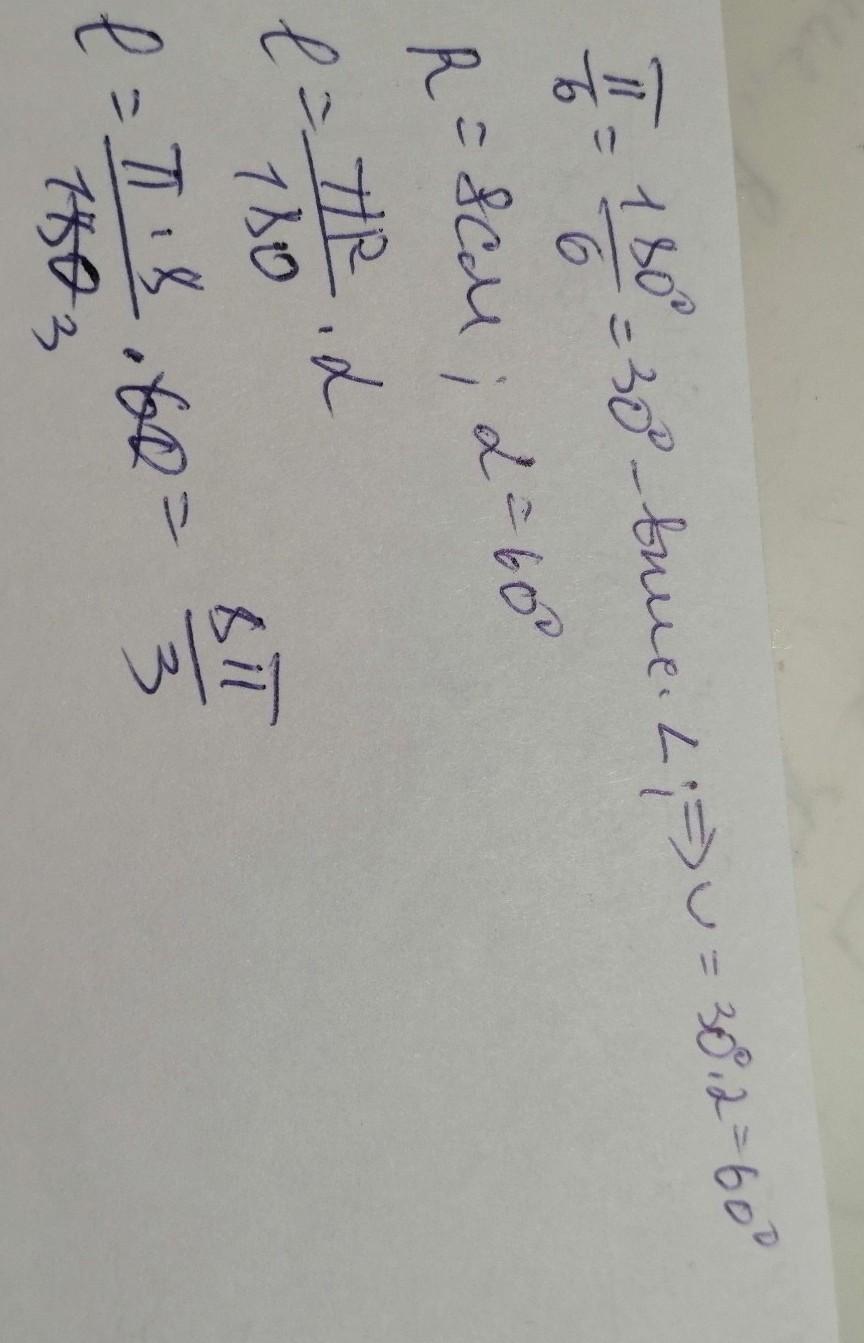 π/6 = 180°/6 = 30° – впис. ∠; ⇒ ◡ = 30°·2 = 60°
R = 8 см ; α = 60°
l = πR/180 · α
l = π·8/180 3 · 60 = 8π/3